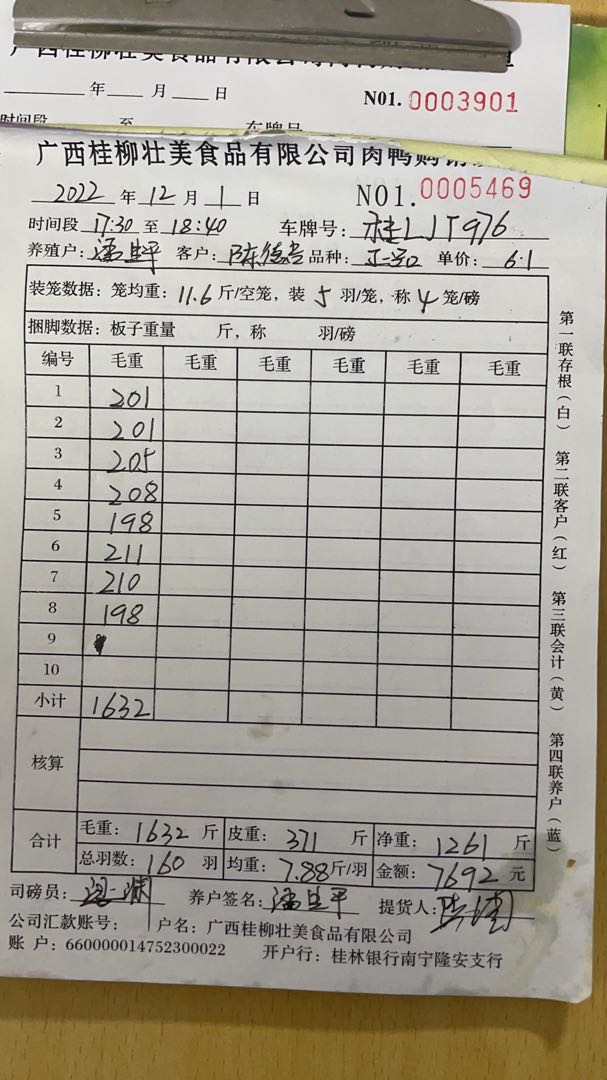 年 月 日 N01.0003901
时间段 至 车牌号
广西桂柳壮美食品有限公司肉鸭购销
2022 年 12 月 1 日 N01.0005469
时间段 17:30 至 18:40 车牌号: 桂LJT976
养殖户: 潘生平 客户: 陈德 品种: 单价: 6.1
装笼数据: 笼均重: 11.6 斤/空笼, 装 5 羽/笼, 称 4 笼/磅
捆脚数据: 板子重量 斤, 称 羽/磅
编号 毛重 毛重 毛重 毛重 毛重 毛重
1 201
2 201
3 205
4 208
5 198
6 211
7 210
8 198
9
10
小计 1632
核算
合计 毛重: 1632 斤 皮重: 371 斤 净重: 1261 斤
总羽数: 160 羽 均重: 7.88 斤/羽 金额: 7692 元
司磅员: 养户签名: 潘生平 提货人:
公司汇款账号: 户名: 广西桂柳壮美食品有限公司
账 户: 660000014752300022 开户行: 桂林银行南宁隆安支行
第一联存根(白) 第二联客户(红) 第三联会计(黄) 第四联养户(蓝)